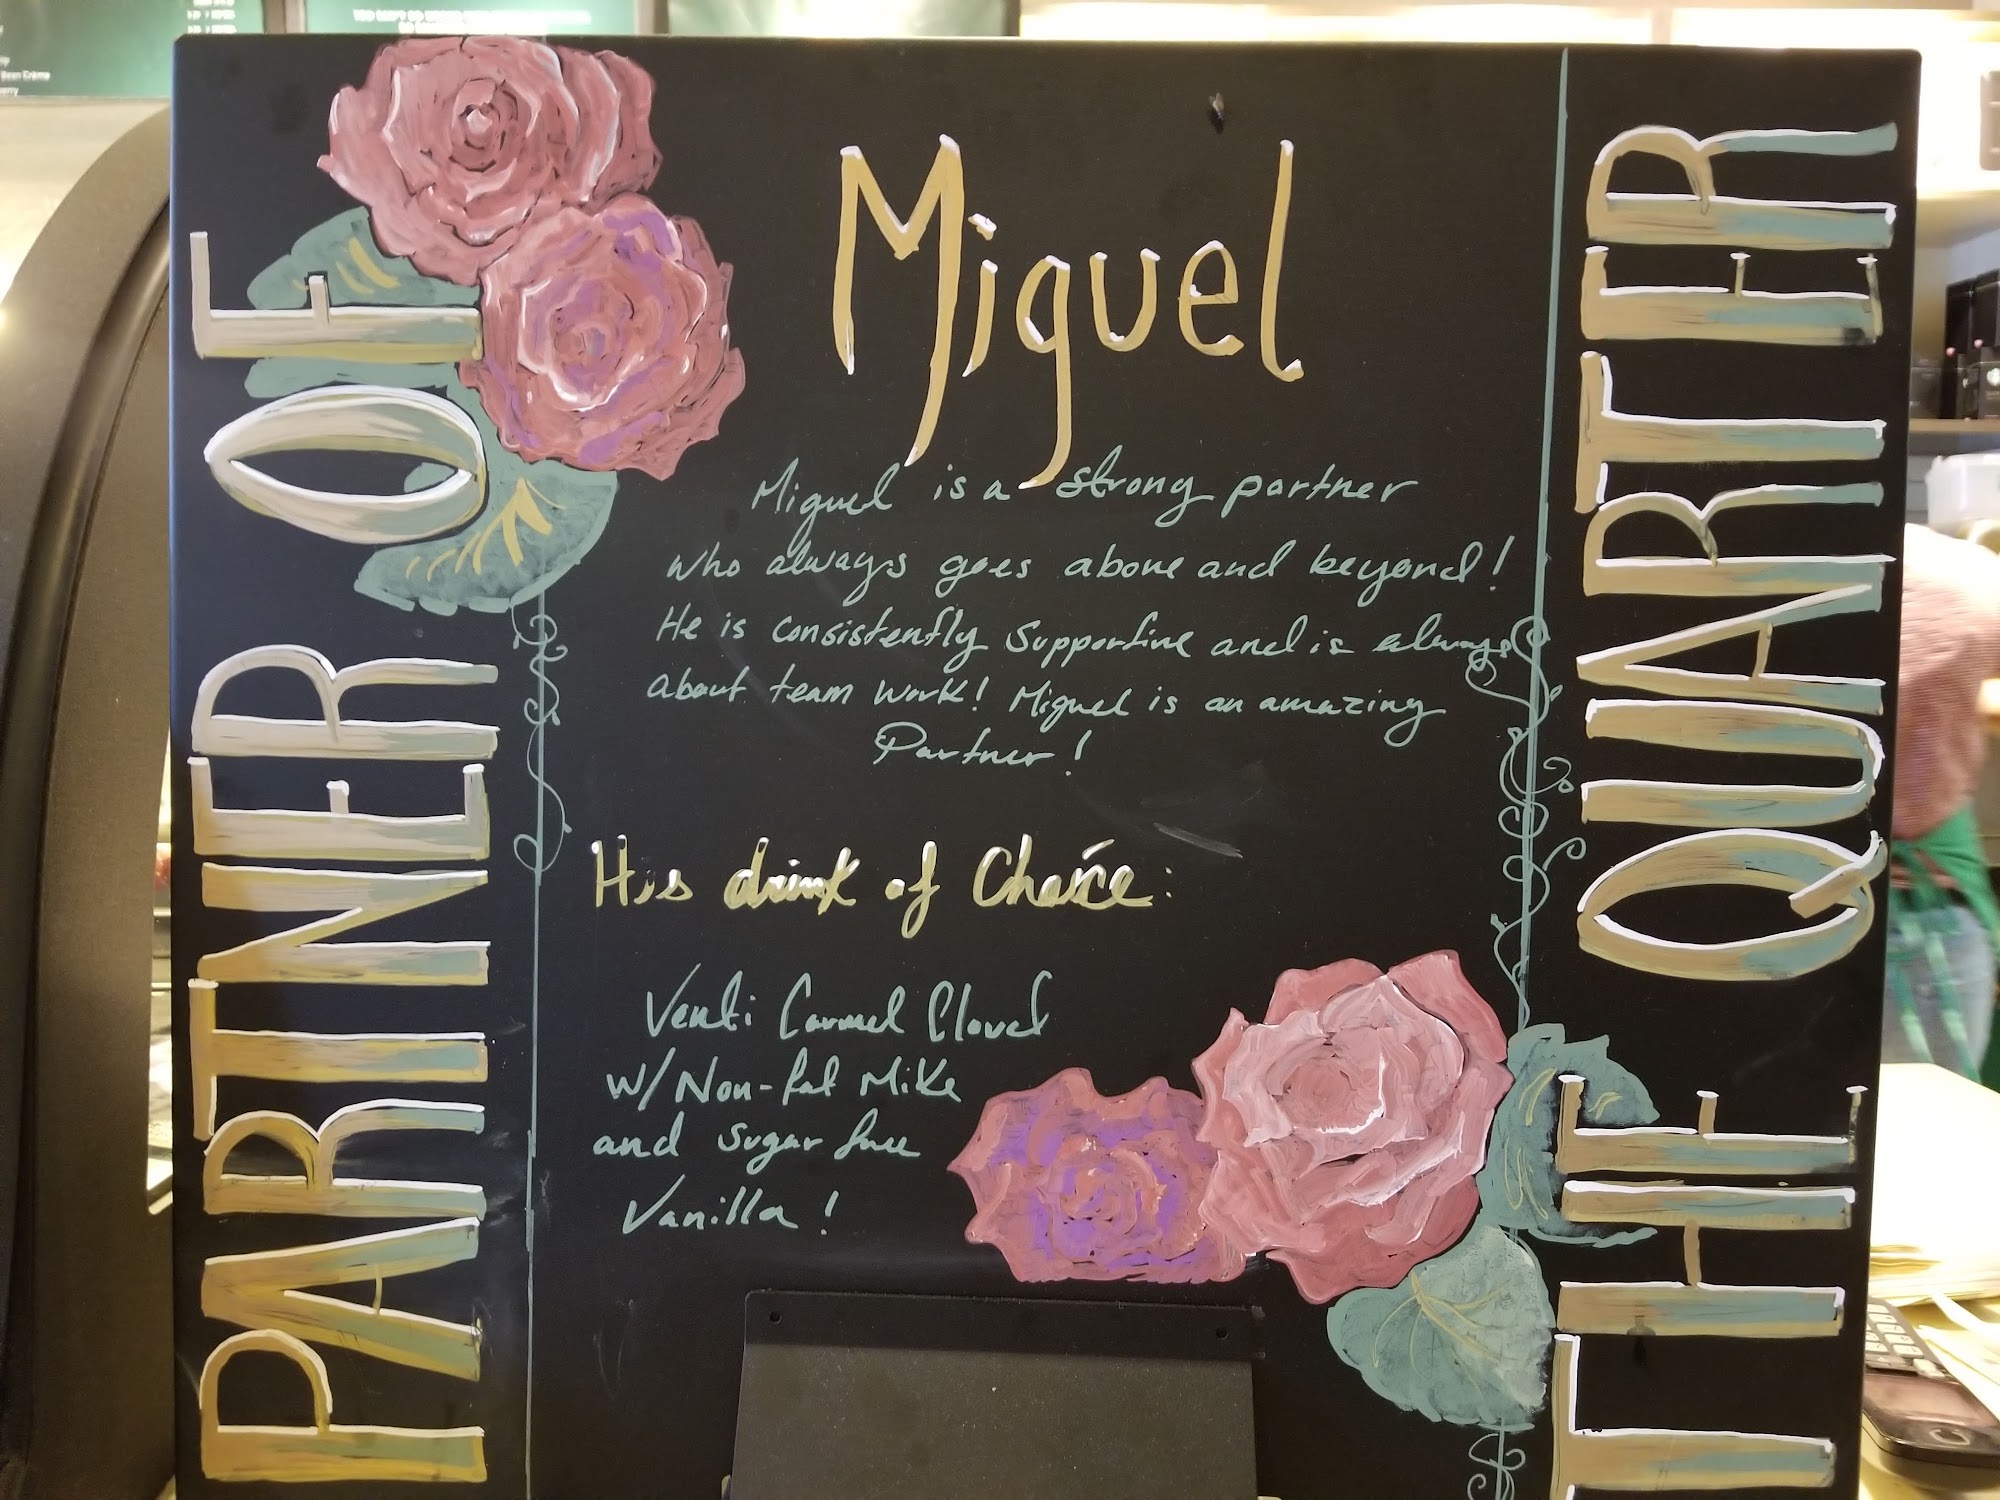 PARTNER OF
THE QUARTER
Miguel
Miguel is a strong partner
who always goes above and beyond!
He is consistently supportive and is always
about team work! Miguel is an amazing
Partner!
His drink of Choice:
Venti Carmel Cloud
w/ Non-fat Milke
and sugar free
Vanilla!